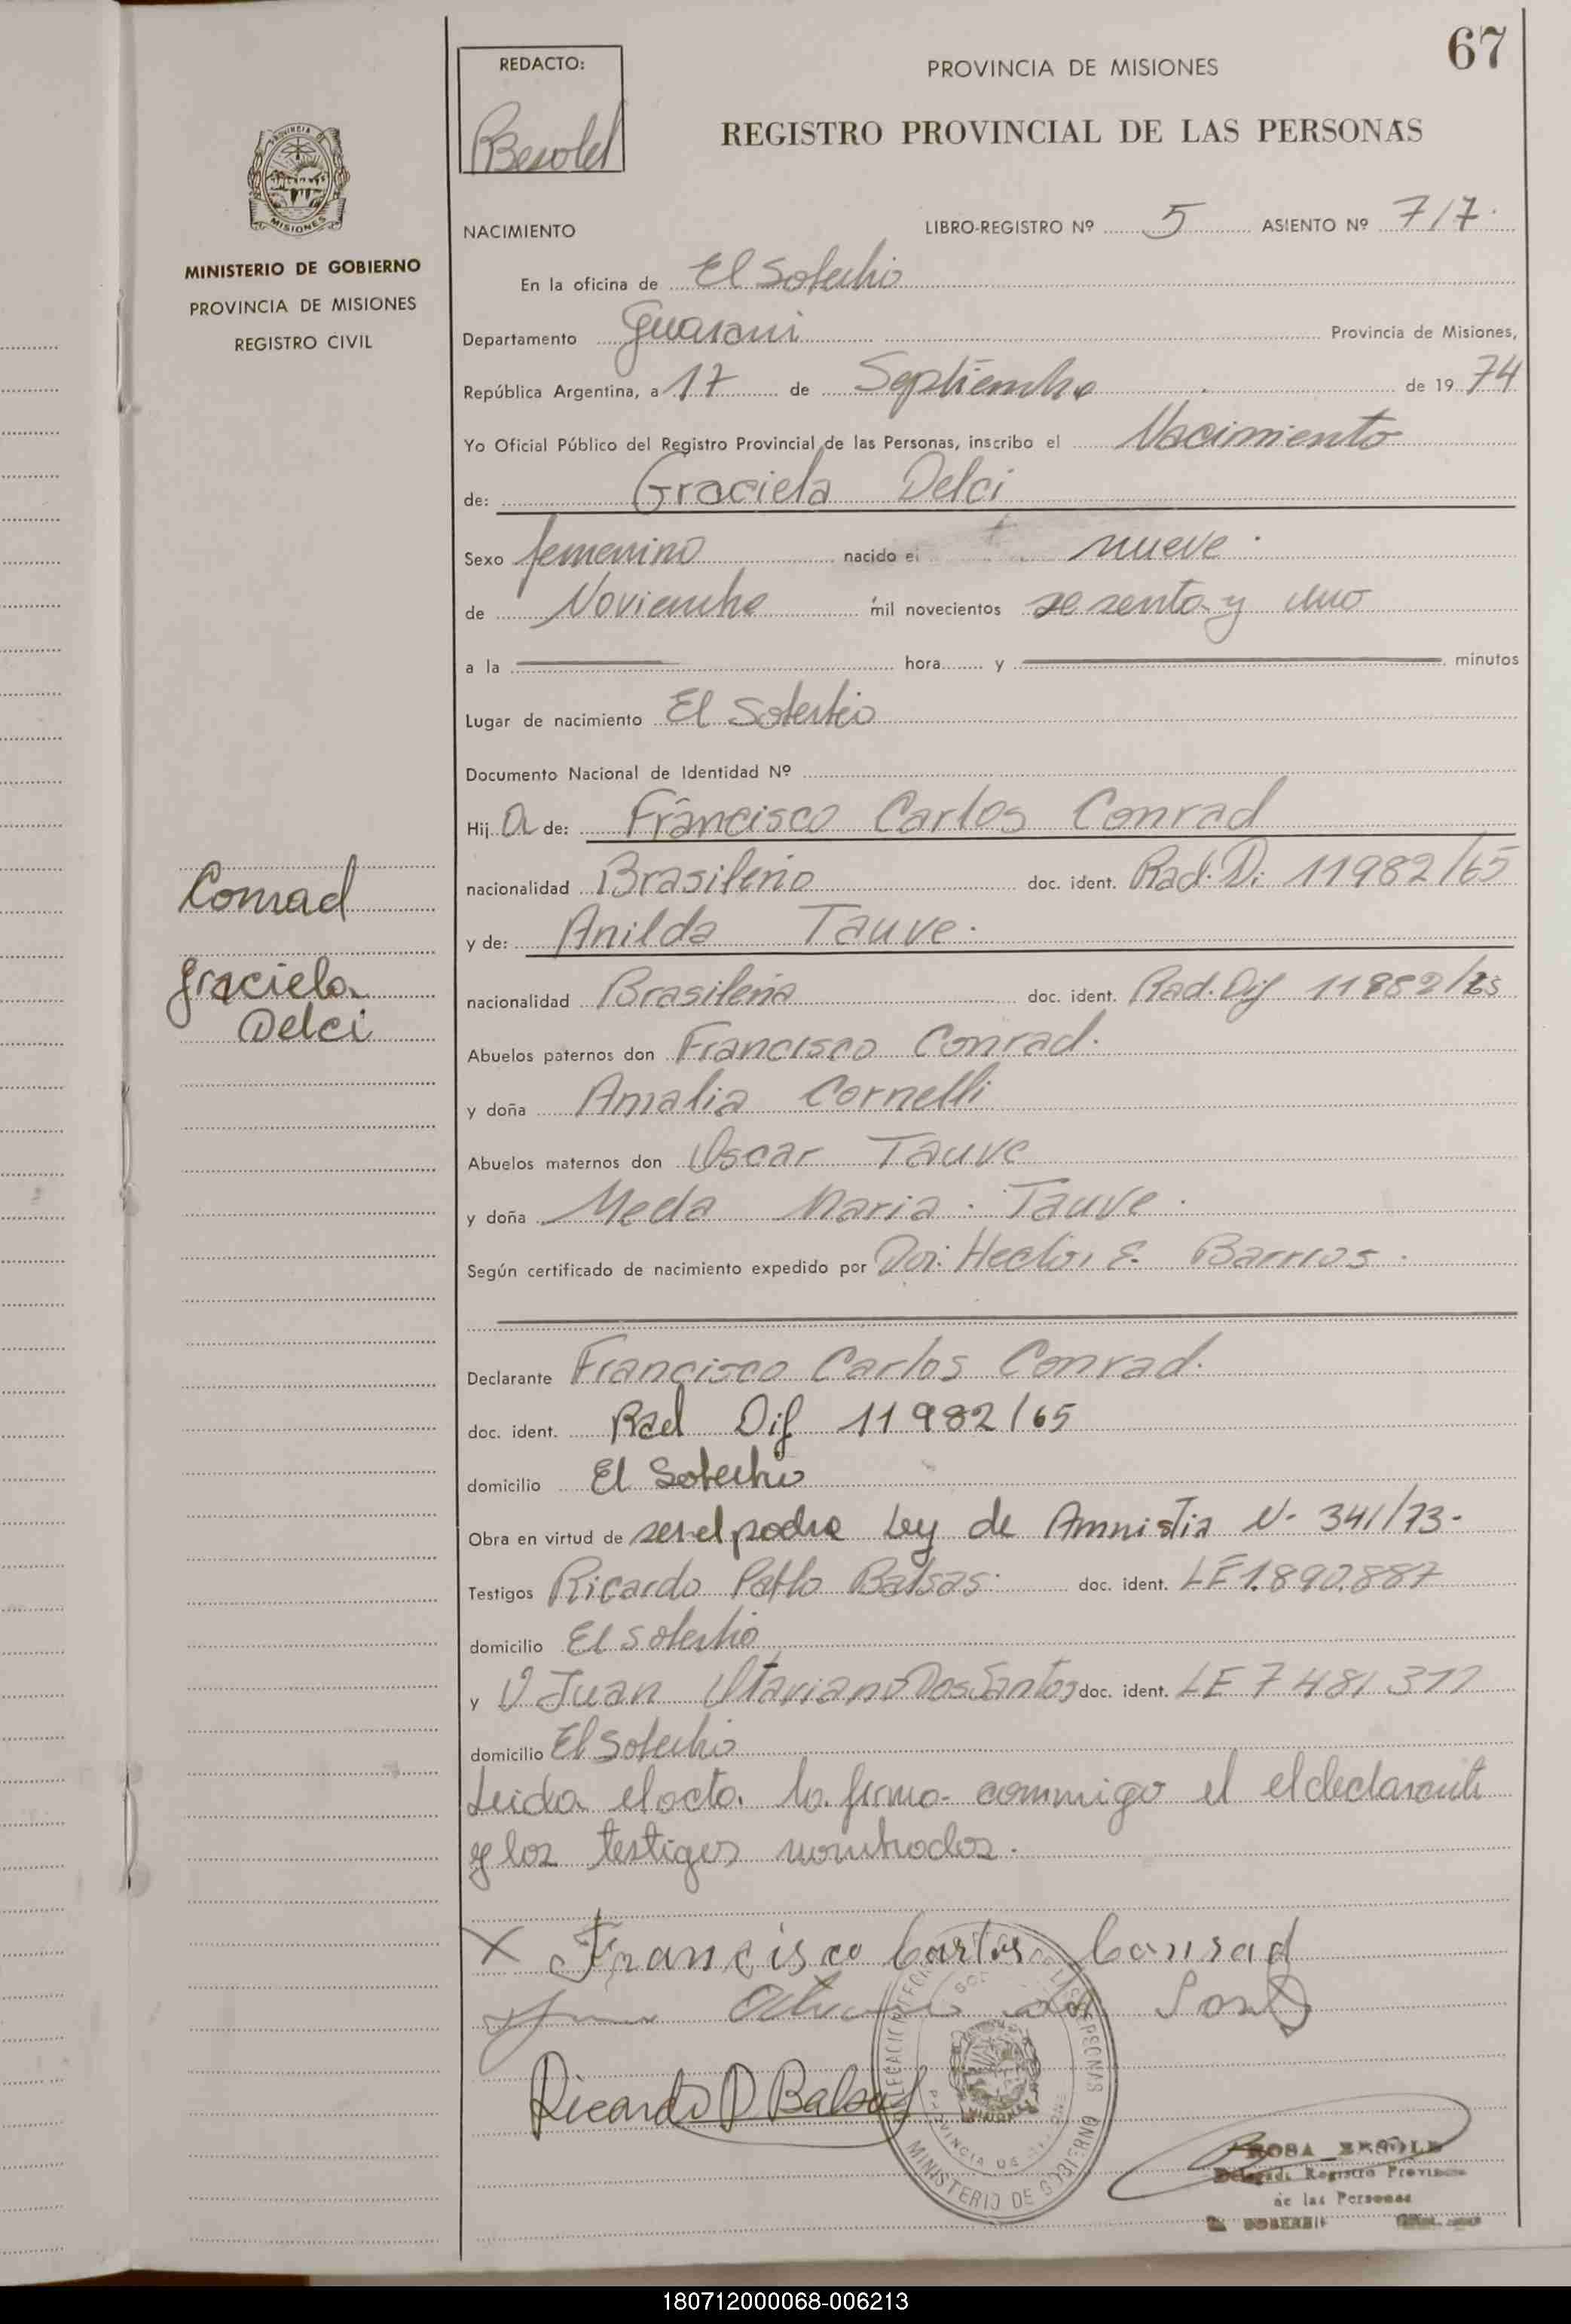 67
REDACTO:
PROVINCIA DE MISIONES
REGISTRO PROVINCIAL DE LAS PERSONAS
NACIMIENTO LIBRO-REGISTRO Nº 5 ASIENTO Nº 717.
MISIONES
MINISTERIO DE GOBIERNO
PROVINCIA DE MISIONES
REGISTRO CIVIL
En la oficina de El Soberbio
Departamento Guarani Provincia de Misiones,
República Argentina, a 17 de Septiembre de 19 74
Yo Oficial Público del Registro Provincial de las Personas, inscribo el Nacimiento
de: Graciela Delci
Sexo femenino nacido el nueve
de Noviembre mil novecientos sesenta y uno
a la hora y minutos
Lugar de nacimiento El Soberbio
Documento Nacional de Identidad Nº
Hij a de: Francisco Carlos Conrad
nacionalidad Brasileño doc. ident. Rad. Di 11982/65
y de: Anilda Tauve.
nacionalidad Brasileña doc. ident. Rad. Dif 11982/65
Conrad
Graciela
Delci
Abuelos paternos don Francisco Conrad.
y doña Amalia Cornelli
Abuelos maternos don Oscar Tauve
y doña Meda Maria Tauve.
Según certificado de nacimiento expedido por Dor: Hector E. Barrios.
Declarante Francisco Carlos Conrad.
doc. ident. Rad Dif 11982/65
domicilio El Soberbio
Obra en virtud de ser el padre Ley de Amnistia N- 341/73-
Testigos Ricardo Pablo Balsas doc. ident. LE 1.890.887
domicilio El Soberbio
y Juan Otaviano Dos Santos doc. ident. LE 7481311
domicilio El Soberbio
Leida el acta la firma conmigo el el declarante
y los testigos nombrados.
X Francisco Carlos Conrad
Ricardo P Balsas
MINISTERIO DE GOBIERNO
ROSA
Registro Provincial
de las Personas
180712000068-006213